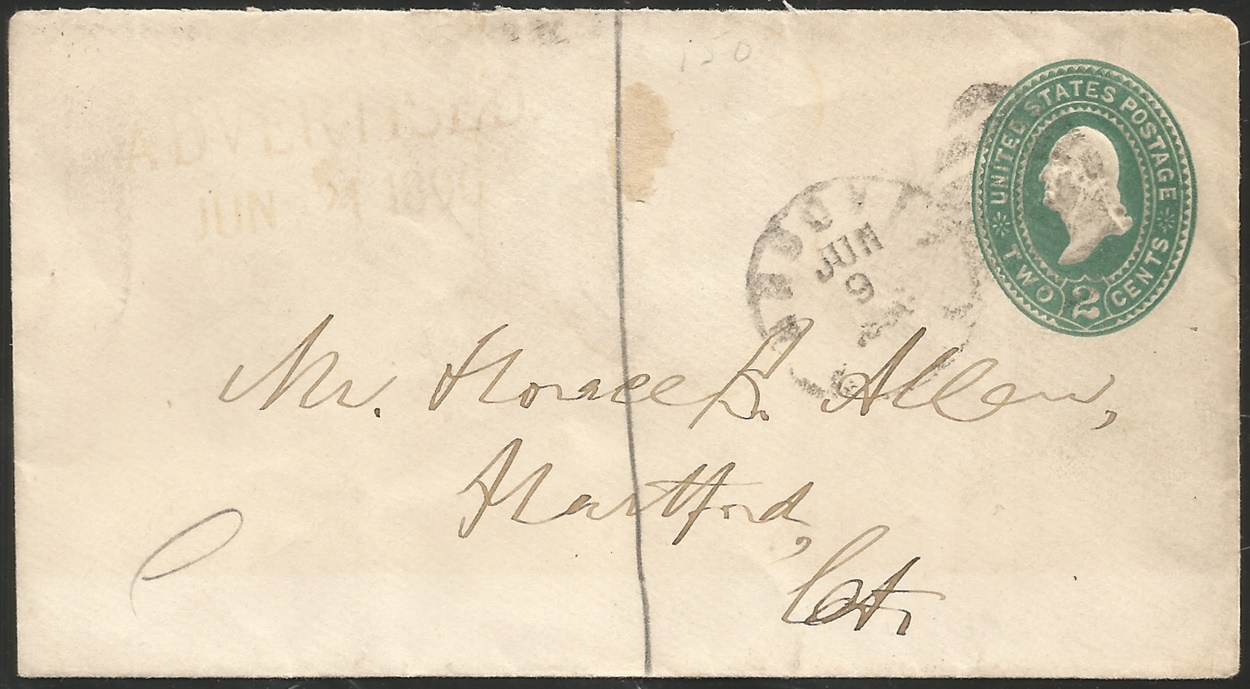 150
ADVERTISED
JUN
UNITED STATES POSTAGE
TWO 2 CENTS
JUN
9
Mr. Horace B. Allen,
Hartford,
Ct.